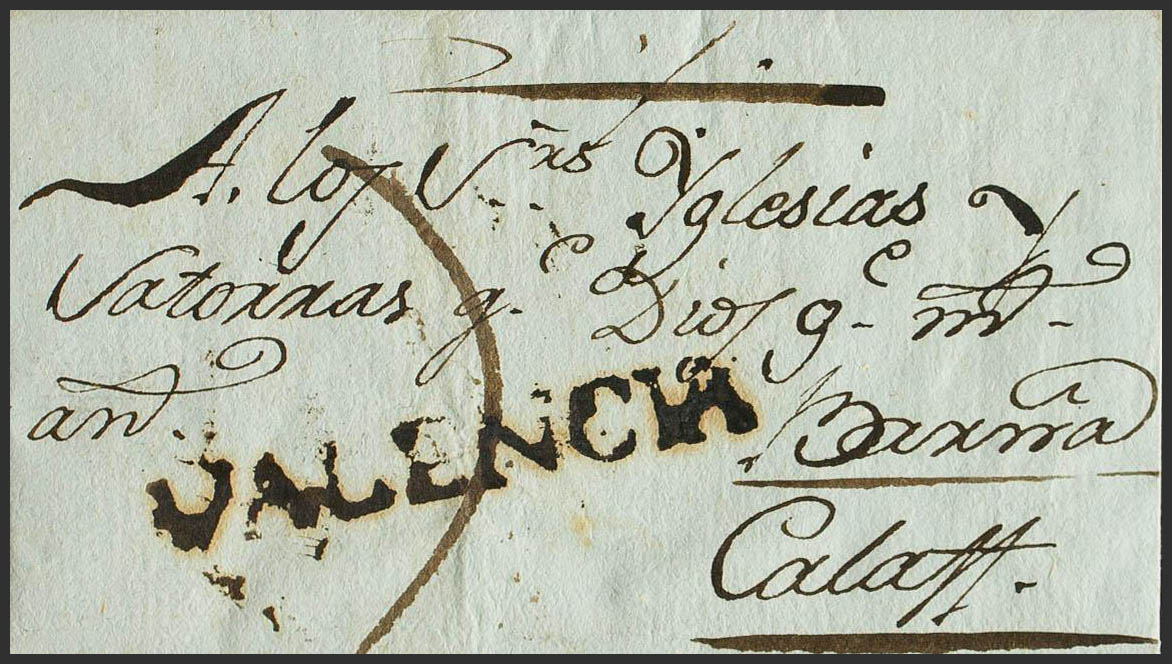 A. los S.res Yglesias y
Satorras q.e Dios g.e m.s
an.s
VALENCIA
Barna
Calaff.